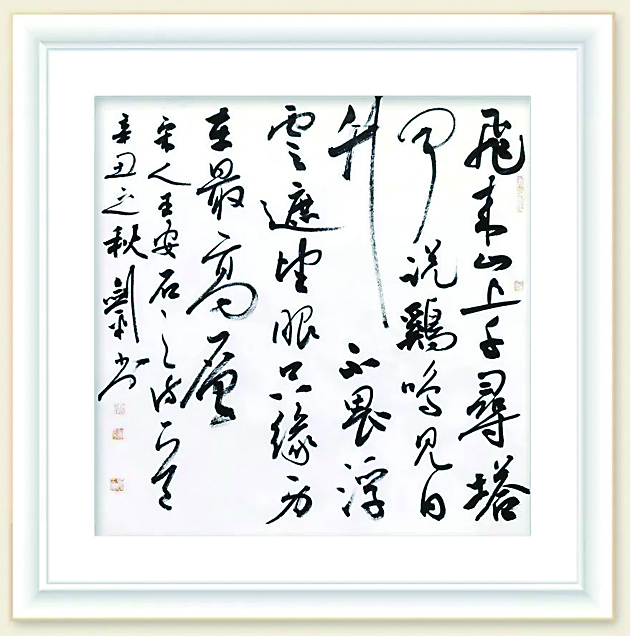 飛來山上千尋塔
聞說鷄鳴見日
升不畏浮
雲遮望眼只緣身
在最高層
宋人王安石之詩
辛丑之秋劍平書